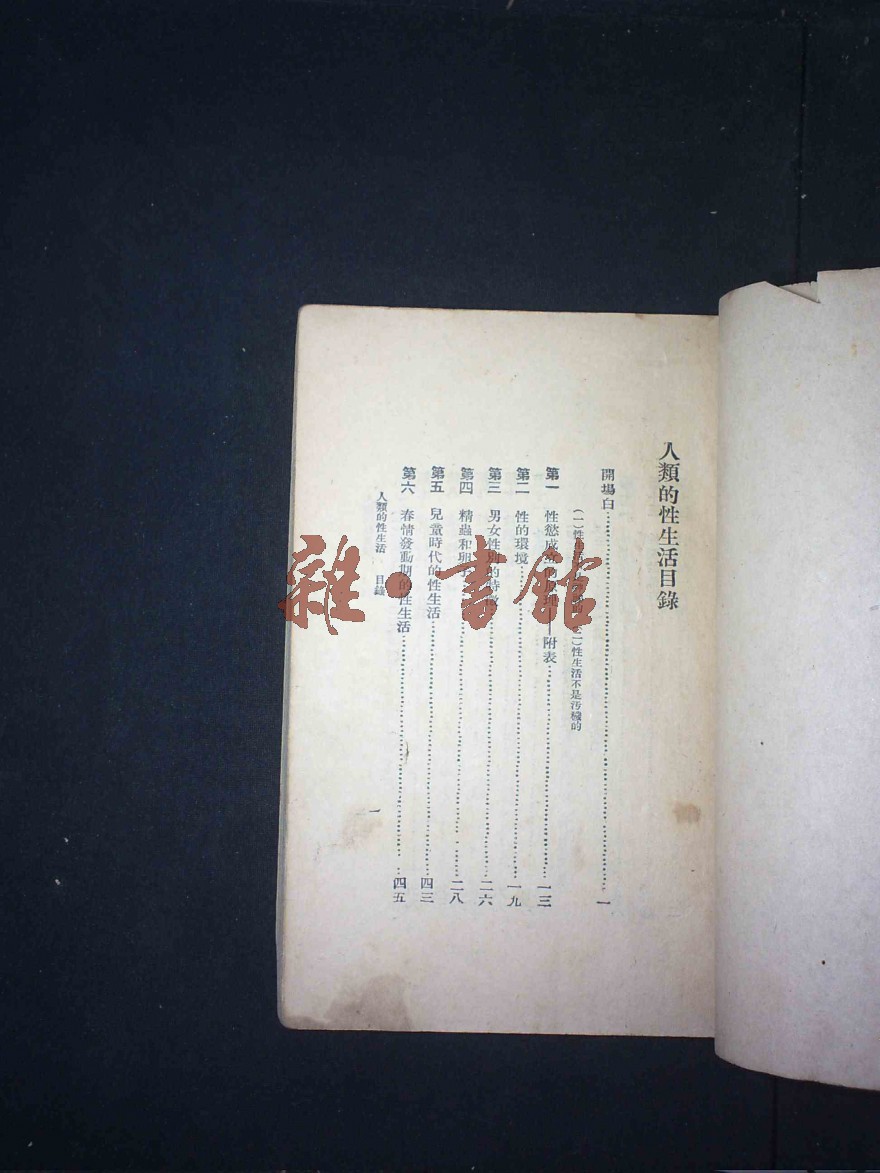 人類的性生活目錄
開場白……一
(一)性 (二)性生活不是污穢的
第一 性慾成 附表……一三
第二 性的環境……一九
第三 男女性別的特……二六
第四 精蟲和卵子……二八
第五 兒童時代的性生活……四三
第六 春情發動期的性生活……四五
人類的性生活 目錄
一
雜·書館